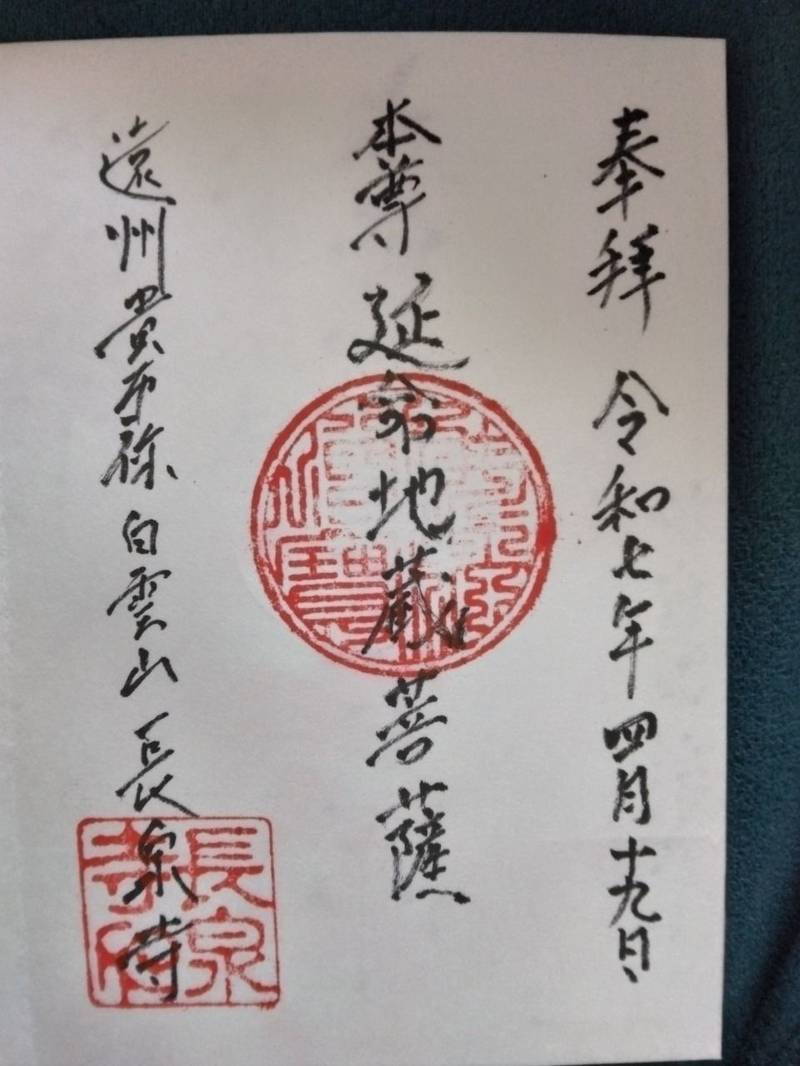 奉拜 令和七年四月十九日
本尊 延命地蔵菩薩
遠州貴布祢 白雲山 長泉寺
長泉寺印